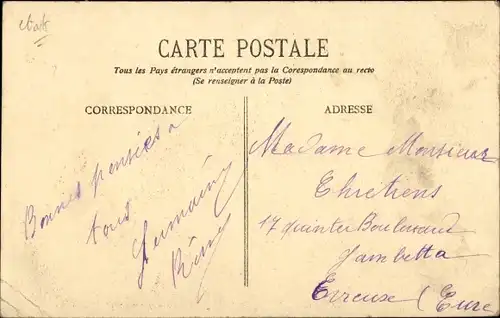 CARTE POSTALE
Tous les Pays étrangers n'acceptent pas la Corespondance au recto
(Se renseigner à la Poste)
CORRESPONDANCE
ADRESSE
Bonnes pensées a
tous
Germaine
Rémy
Madame Monsieur
Chretiens
17 quinter Boulevard
Gambetta
Evreuse (Eure